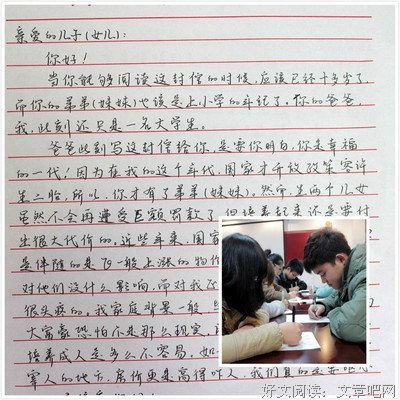 亲爱的儿子(女儿):
你好!
当你能够阅读这封信的时候,应该已经十多岁了,
而你的弟弟(妹妹)也该是上小学的年纪了。你的爸爸,
我,此刻还只是一名大学生。
爸爸此刻写这封信给你,是要你明白,你是幸福
的一代!因为在我的这个年代,国家才开放政策容许
生二胎,所以,你才有了弟弟(妹妹)。然而,生两个儿女
虽然不会再遭受巨额罚款了,但培养起来还是要付
出很大代价的。这些年来,国家
是伴随的是飞一般上涨的物价
对他们没什么影响,而对我
很头疼的。我家庭背景一般
大富豪恐怕不是那么现实,
培养成人是多么不容易。如
穷人的地方,房价更是高得吓人,我们真的
好文阅读: 文章吧网